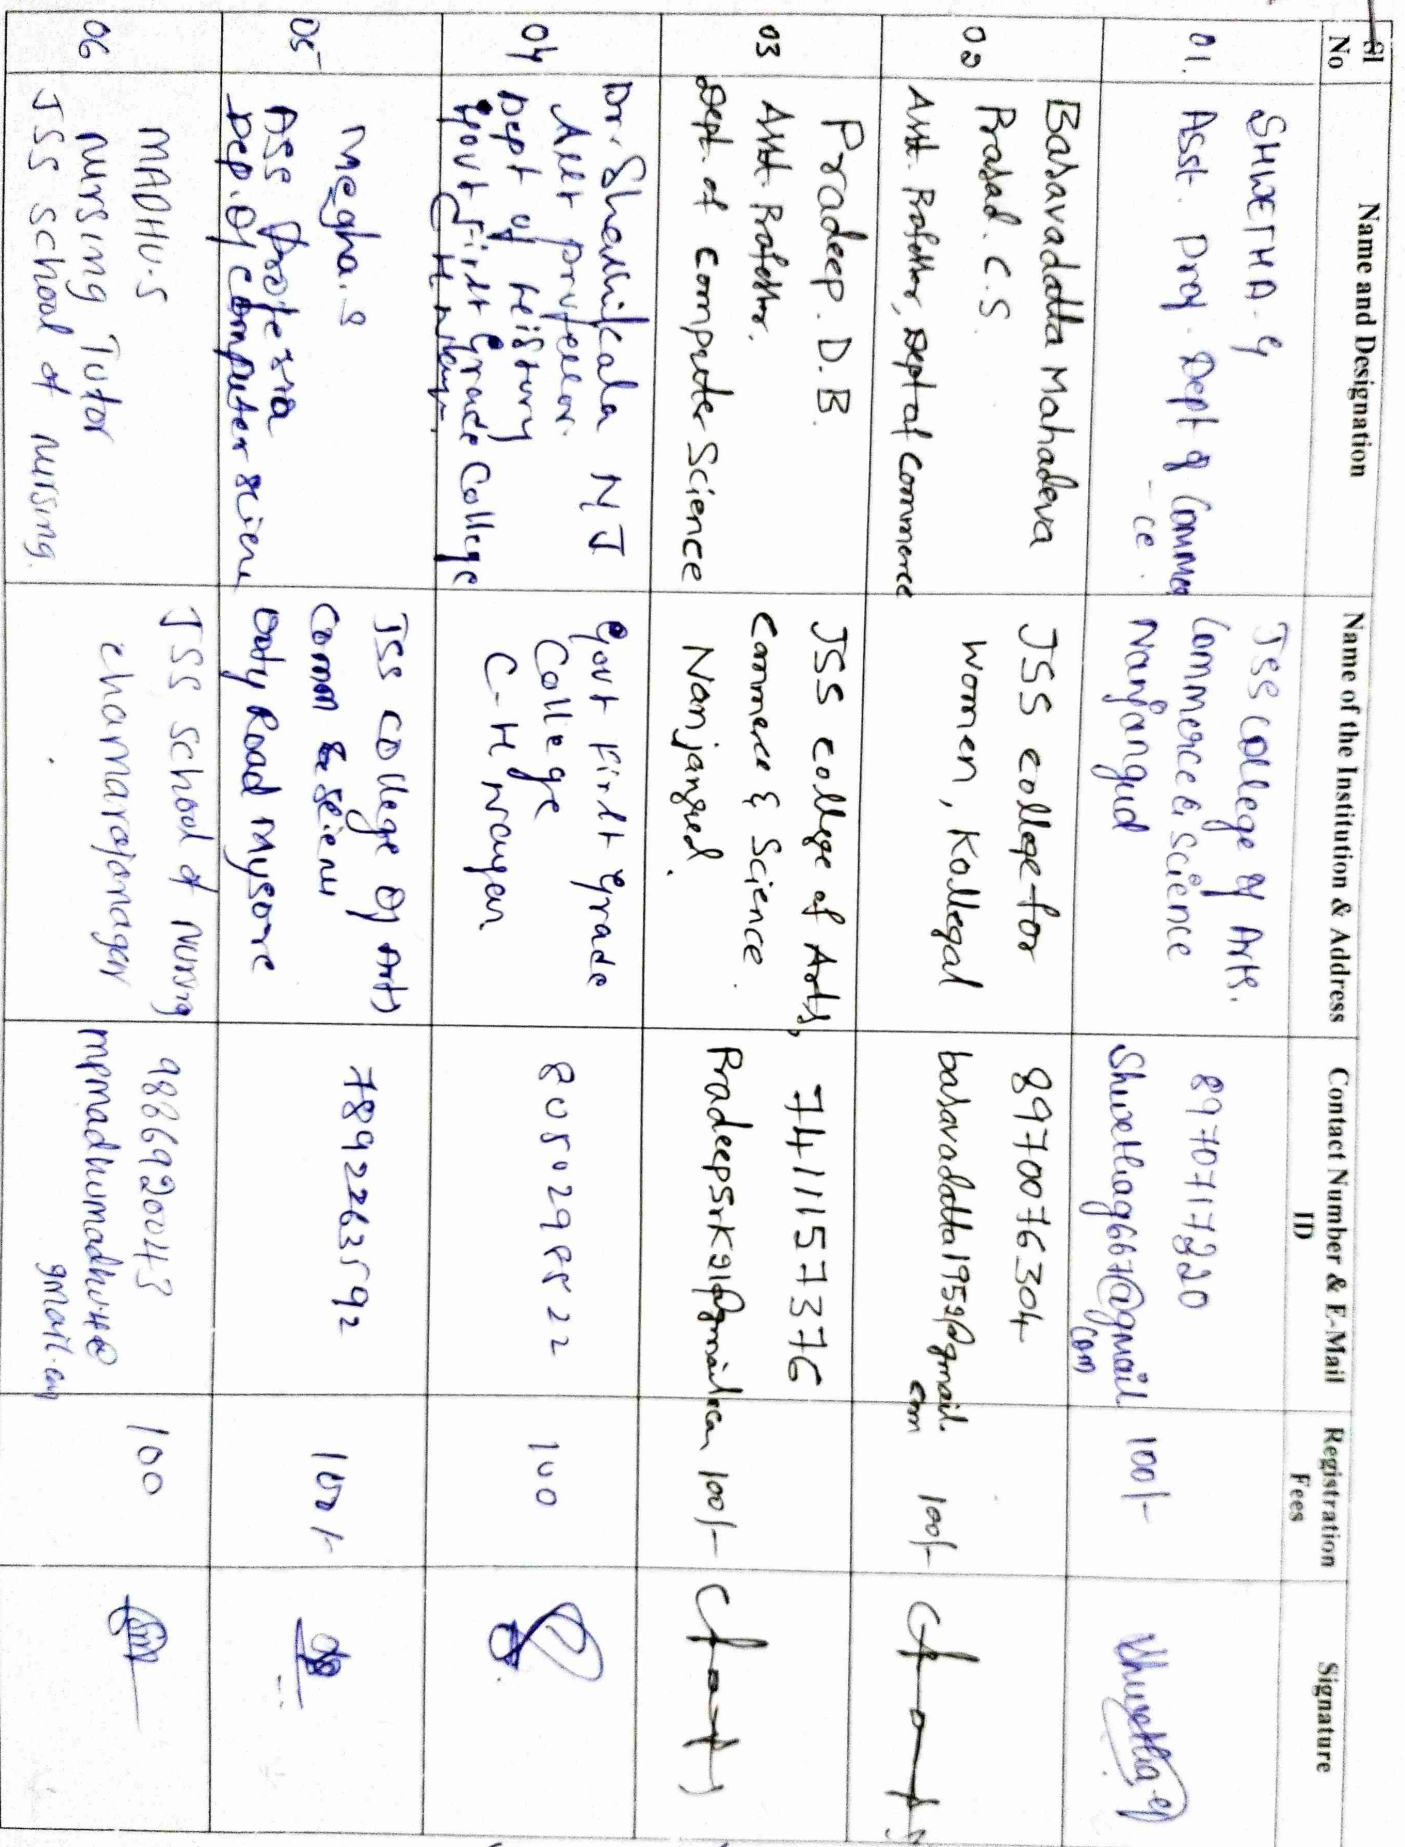 Sl No
Name and Designation
Name of the Institution & Address
Contact Number & E-Mail ID
Registration Fees
Signature
01.
SHWETHA. G
Asst. Prof. Dept of Commer
-ce.
JSS College of Arts.
Commerce & Science
Nanjangud
8970717220
Shwethag667@gmail
com
100/-
Shwetha G
02
Basavadatta Mahadeva
Prasad. C.S.
Asst. Professor, Dept of Commerce
JSS college for
women, Kollegal
8970076304
basavadatta1952@gmail.
com
100/-
03
Pradeep. D.B.
Asst. Professor.
Dept. of Computer Science
JSS college of Arts,
Commerce & Science
Nanjangud.
7411157376
Pradeepsrk21@gmail.com
100/-
04
Dr. Shashikala N J
Asst professor.
Dept of History
Govt First Grade College
Govt First Grade
College
C-H Nagar
100
05
Megha. S
Ass
Dep. Of Computer Scien
JSS College Of Arts
Comm & Scienu
Ooty Road Mysore
7892263592
100/-
06
MADHU.S
Nursing Tutor
JSS School of Nursing.
JSS School of Nursing
Chamarajanagar
9886920043
gmail.com
100